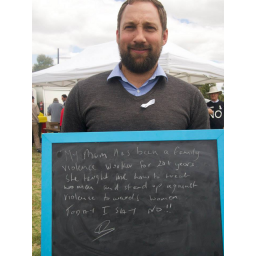 My Mum has been a family
violence worker for 20+ years
She taught me how to treat
women and stand up against
violence towards women.
Today I say NO!!